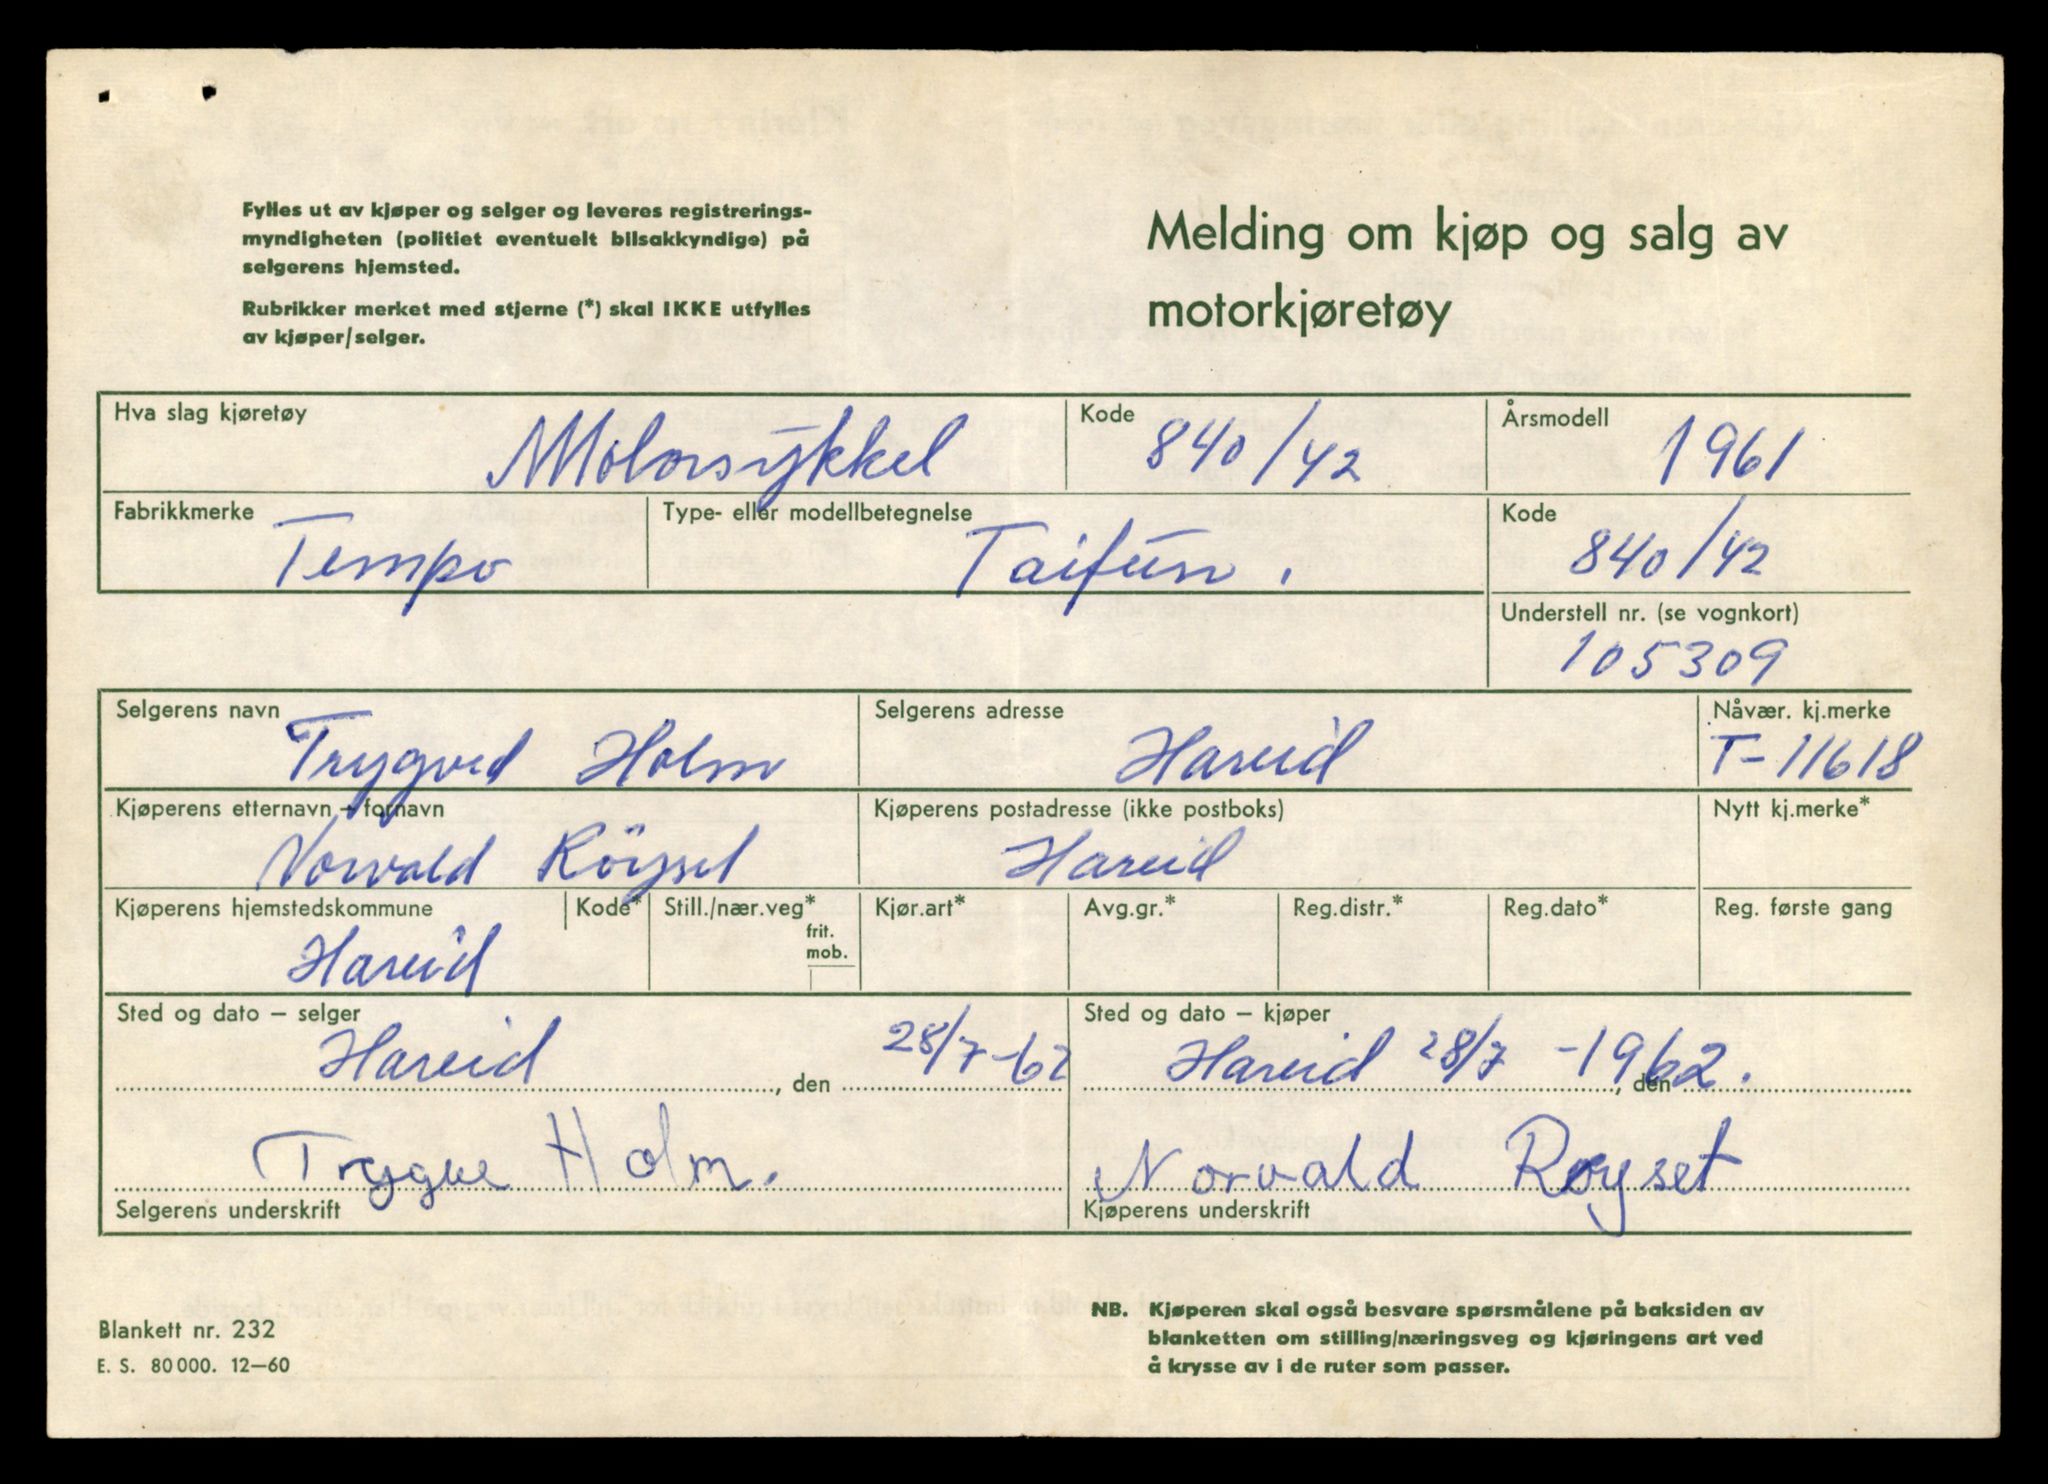 Fylles ut av kjøper og selger og leveres registrerings-
myndigheten (politiet eventuelt bilsakkyndige) på
selgerens hjemsted.
Rubrikker merket med stjerne (*) skal IKKE utfylles
av kjøper/selger.
Melding om kjøp og salg av
motorkjøretøy
Hva slag kjøretøy Motorsykkel Kode 840/42 Årsmodell 1961
Fabrikkmerke Tempo Type- eller modellbetegnelse Taifun. Kode 840/42
Understell nr. (se vognkort)
105309
Selgerens navn Selgerens adresse Nåvær. kj.merke
Trygved Holm Hareid T-11618
Kjøperens etternavn - fornavn Kjøperens postadresse (ikke postboks) Nytt kj.merke*
Norvald Röyset Hareid
Kjøperens hjemstedskommune Kode* Still./nær.veg* frit. mob. Kjør.art* Avg.gr.* Reg.distr.* Reg.dato* Reg. første gang
Hareid
Sted og dato - selger Sted og dato - kjøper
Hareid, den 28/7-62 Hareid 28/7 -1962., den
Trygve Holm. Norvald Røyset
Selgerens underskrift Kjøperens underskrift
NB. Kjøperen skal også besvare spørsmålene på baksiden av
blanketten om stilling/næringsveg og kjøringens art ved
å krysse av i de ruter som passer.
Blankett nr. 232
E. S. 80000. 12-60